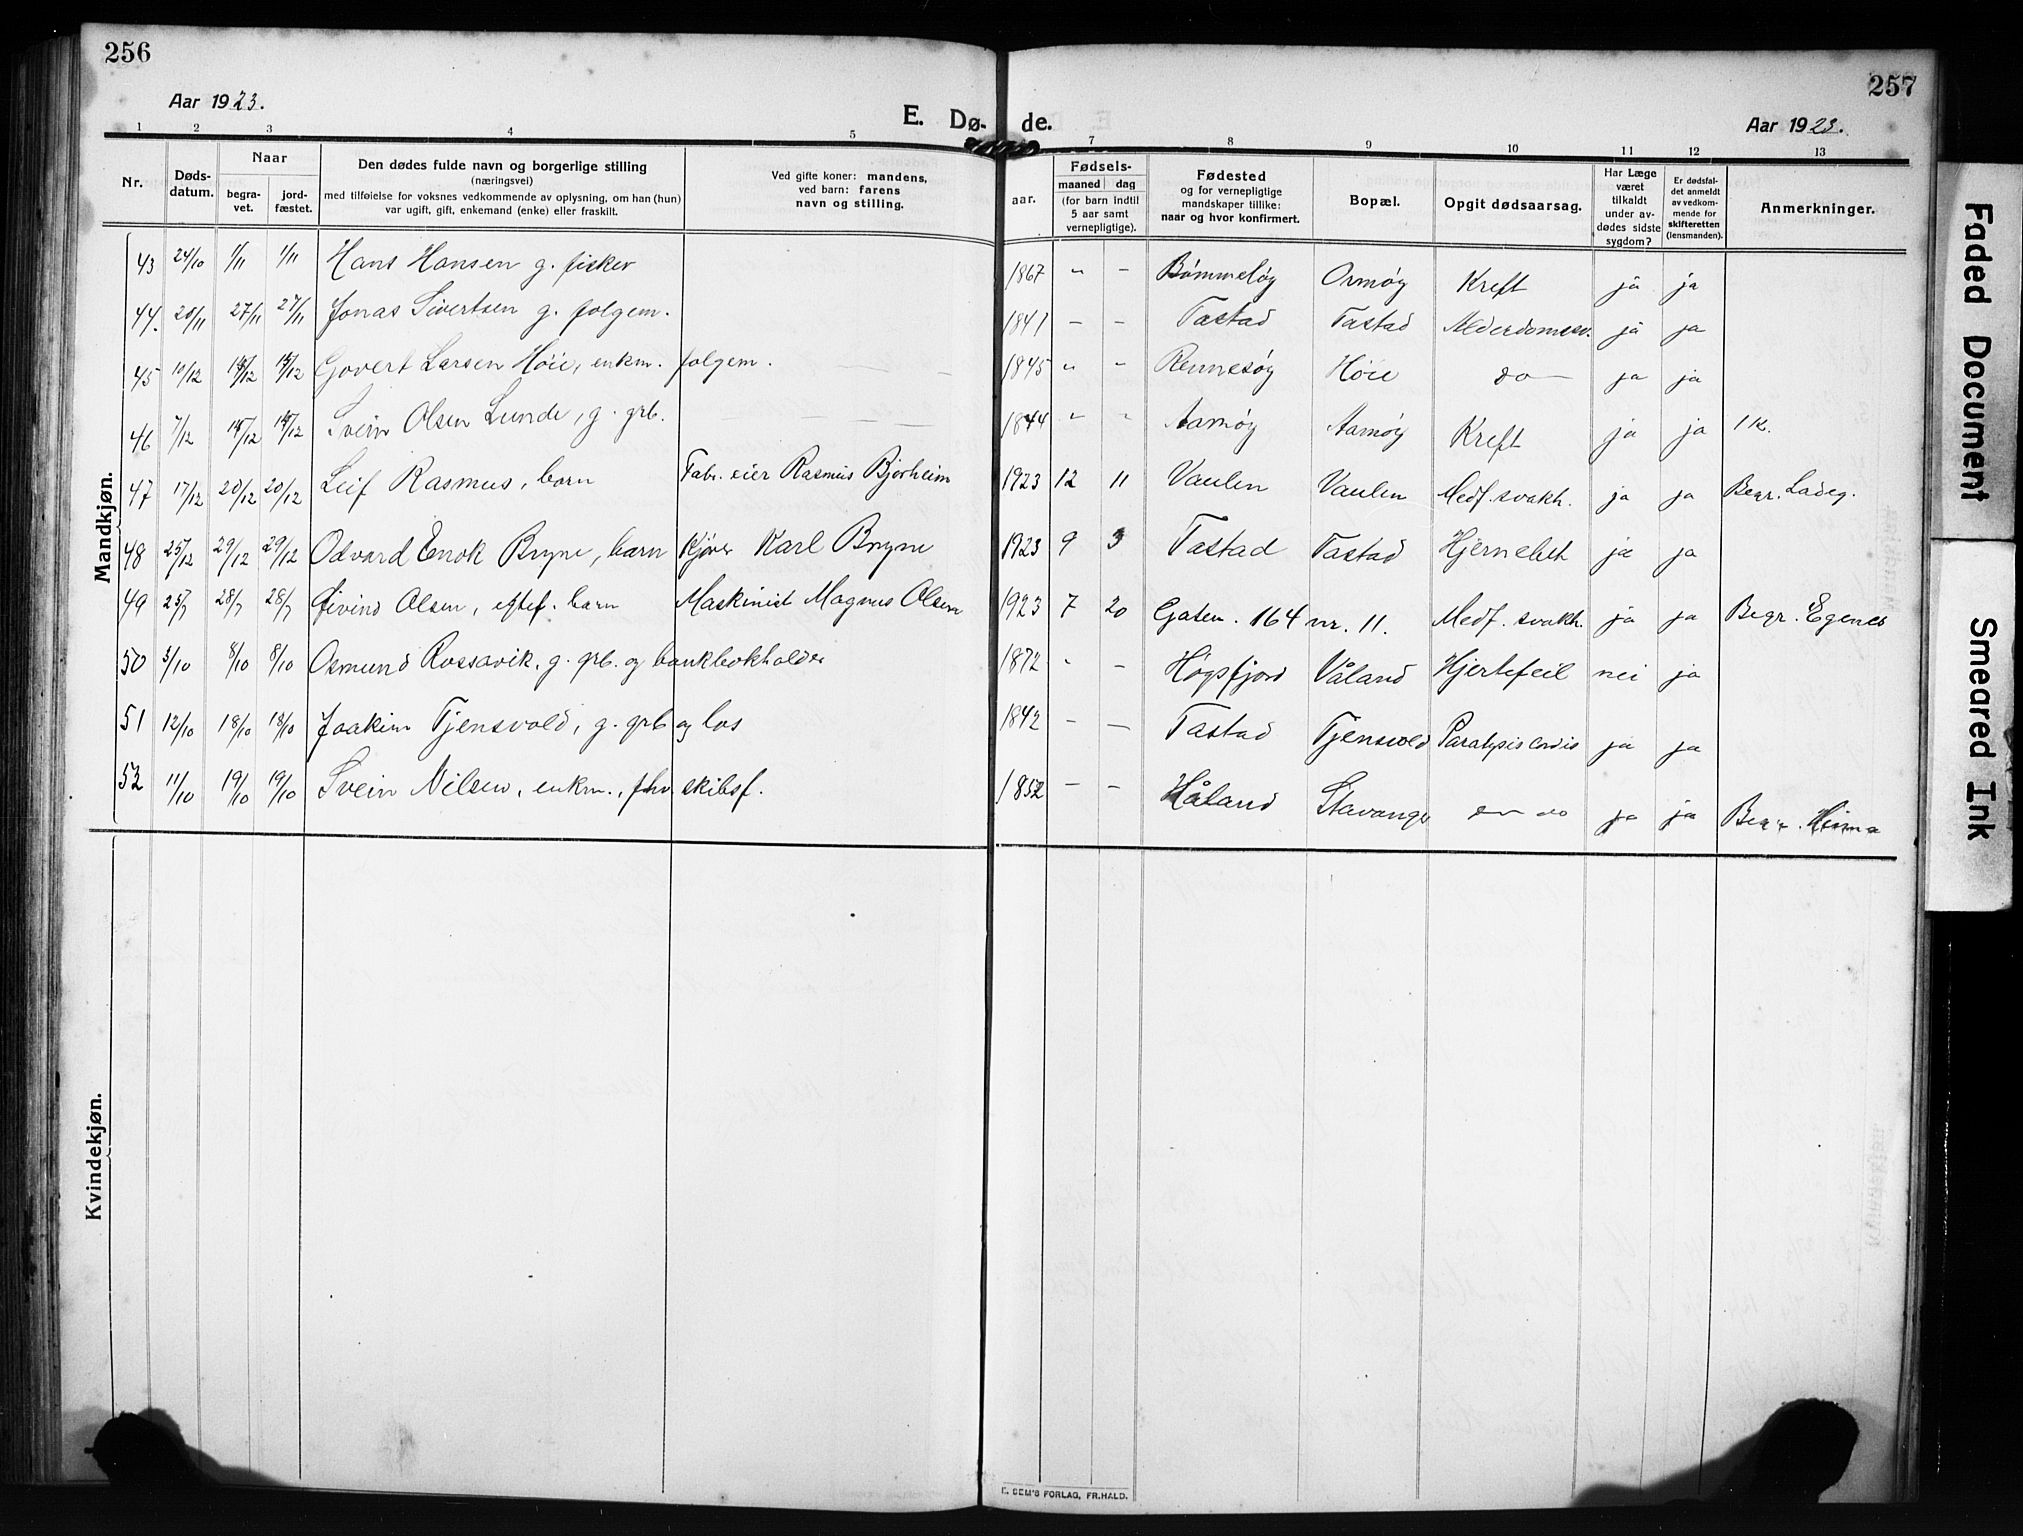 256
257
Aar 1923.
E. Dø-
de.
Aar 1923.
1 2 3 4 5 7 8 9 10 11 12 13
Nr.
Døds-
datum.
Naar
begra-
vet.
jord-
fæstet.
Den dødes fulde navn og borgerlige stilling
(næringsvei)
med tilføielse for voksnes vedkommende av oplysning, om han (hun)
var ugift, gift, enkemand (enke) eller fraskilt.
Ved gifte koner: mandens,
ved barn: farens
navn og stilling.
Fødsels-
aar.
maaned dag
(for barn indtil
5 aar samt
vernepligtige).
Fødested
og for vernepligtige
mandskaper tillike:
naar og hvor konfirmert.
Bopæl.
Opgit dødsaarsag.
Har Læge
været
tilkaldt
under av-
dødes sidste
sygdom?
Er dødsfal-
det anmeldt
av vedkom-
mende for
skifteretten
(lensmanden).
Anmerkninger.
Mandkjøn.
43 24/10 1/11 1/11 Hans Hansen g. fisker 1867 " - Bømmeløy Ormøy Kreft ja ja
44. 20/11 27/11 27/11 Jonas Sivertsen g. folgem. 1841 - - Tastad Tastad Alderdomssv. ja ja
45 10/12 /12 /12 Govert Larsen Høie, enkm. folgem. 1845 " - Rennesøy Høie do ja ja
46 7/12 /12 /12 Svein Olsen Lunde, g. grb. 1844 " " Aamøy Aamøy Kreft ja ja 1 K.
47 17/12 20/12 20/12 Leif Rasmus, barn Fabr. eier Rasmus Bjørheim 1923 12 11 Vaulen Vaulen Medf. svakh. ja ja Begr. Ladeg.
48 25/12 29/12 29/12 Odvard Enok Bryne, barn Kjører Karl Bryne 1923 9 3 Tastad Tastad ja ja
49 25/7 28/7 28/7 Øivind Olsen, eftef. barn Maskinist Magnus Olsen 1923 7 20 Gaten. 164 nr. 11. Medf. svakh. ja ja Begr. Egenes
50 3/10 8/10 8/10 Osmund Rossavik, g. grb. og bankbokholder 1872 " - Høgsfjord Våland Hjertefeil nei ja
51 12/10 18/10 18/10 Joakim Tjensvold, g. grb og los 1842 - - Tastad Tjensvold Paralysis cordis ja ja
52 11/10 19/10 19/10 Svein Nilsen, enkm., fhv skibsf. 1852 - - Håland Stavanger do ja ja Begr. Hinna
Kvindekjøn.
E. SEM'S FORLAG, FR.HALD.
Faded Document
Smeared Ink